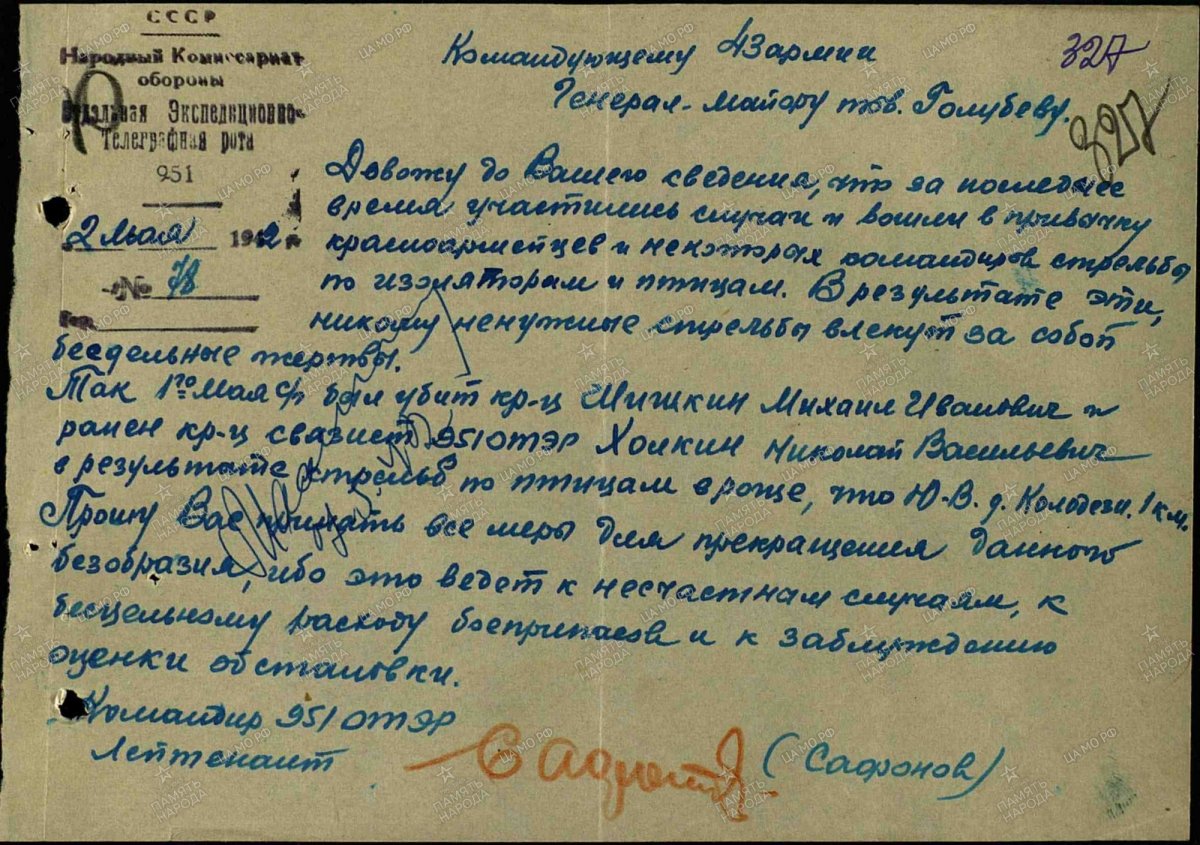 СССР
Народный Комиссариат
обороны
Отдельная Экспедиционно-
Телеграфная рота
951
2 мая 1942 г.
№ 78
Гор.
327
327
Командующему 43 армии
Генерал-майору тов. Голубеву.
Довожу до Вашего сведения, что за последнее
время участились случаи и вошли в привычку
красноармейцев и некоторых командиров стрельбы
по изоляторам и птицам. В результате эти,
никому ненужные стрельбы влекут за собой
бесдельные жертвы.
Так 1го мая с/г был убит кр-ц Мишкин Михаил Иванович и
ранен кр-ц связист 951 ОТЭР Холкин Николай Васильевич
в результате стрельб по птицам в роще, что Ю-В. д. Колодези 1 км.
Прошу Вас принять все меры для прекращения данного
безобразия, ибо это ведет к несчастным случаям, к
бесцельному расходу боеприпасов и к заблуждению
оценки обстановки.
Командир 951 ОТЭР
Лейтенант
(Сафонов)
ПАМЯТЬ НАРОДА
ЦАМО.РФ